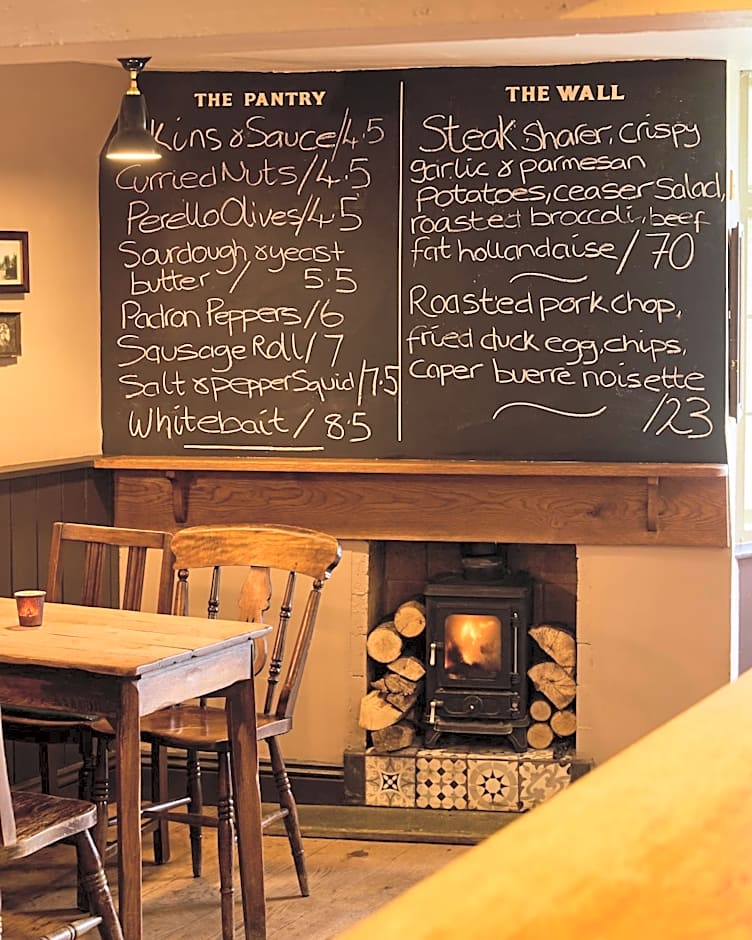 THE PANTRY
kins & Sauce/4.5
Curried Nuts/4.5
Perello Olives/4.5
Sourdough & yeast
butter / 5.5
Padron Peppers/6
Sausage Roll/7
Salt & pepper Squid/7.5
Whitebait/8.5
THE WALL
Steak Sharer, crispy
garlic & parmesan
potatoes, ceaser Salad,
roasted broccoli, beef
fat hollandaise/70
Roasted pork chop,
fried duck egg, chips,
caper buerre noisette
/23